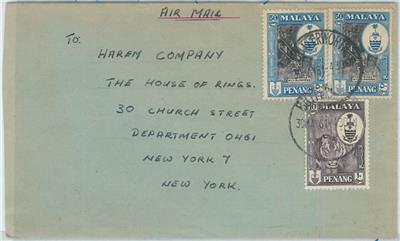 AIR MAIL
TO:
HAREM COMPANY
THE HOUSE OF RINGS.
30 CHURCH STREET
DEPARTMENT 0461
NEW YORK 7
NEW YORK.
MALAYA
MALAYA
PENANG
PENANG
MALAYA
PENANG